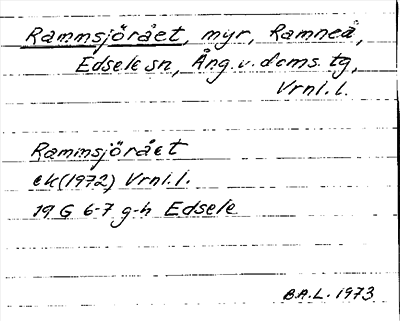 Rammsjörået, myr, Ramneå,
Edsele sn, Ång. v. doms. tg,
Vrnl. l.
Rammsjörået
ek (1972) Vrnl. l.
19 G 6-7 g-h Edsele
B.A.L. 1973